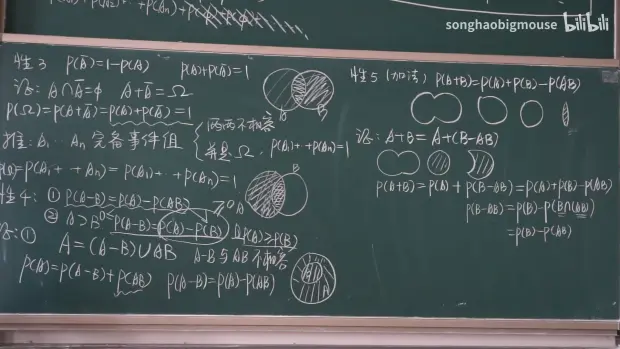 songhaobigmouse bilibili
性3 P(A̅)=1-P(A) P(A)+P(A̅)=1
证: A∩A̅=φ A+A̅=Ω
P(Ω)=P(A+A̅)=P(A)+P(A̅)=1
推: A₁…Aₙ 完备事件组 { 两两不相容
并是Ω. P(A₁)+…+P(Aₙ)=1
P(Ω)=P(A₁+…+Aₙ)=P(A₁)+…+P(Aₙ)=1
性4: ① P(A-B)=P(A)-P(AB)
② A⊃B P(A-B)=P(A)-P(B) 且P(A)≥P(B)
≥0
证: ①
A=(A-B)∪AB A-B与AB不相容
P(A)=P(A-B)+P(AB) P(A-B)=P(A)-P(AB)
A B
A B
A
性5 (加法) P(A+B)=P(A)+P(B)-P(AB)
证: A+B=A+(B-AB)
P(A+B)=P(A)+P(B-AB)=P(A)+P(B)-P(AB)
P(B-AB)=P(B)-P(B∩(AB))
=P(B)-P(AB)